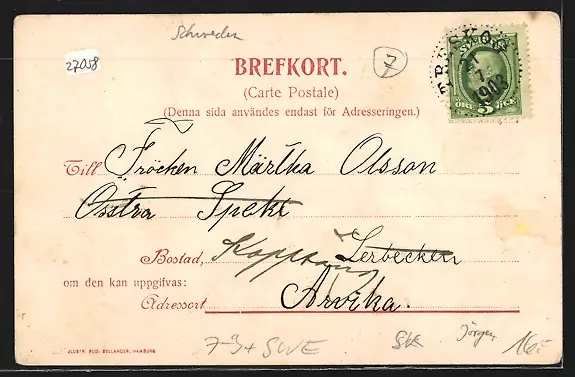 Schweden
27058
7
BREFKORT.
(Carte Postale)
(Denna sida användes endast för Adresseringen.)
21
7
1903
ÖRE 5 ÖRE
Till Fröcken Märtha Olsson
Osstra Speke
Bostad, Lerbecken
om den kan uppgifvas:
Adressort Arvika.
ILLUSTR. RUD. BELLANDER, HAMBURG
SVE
Jörgen